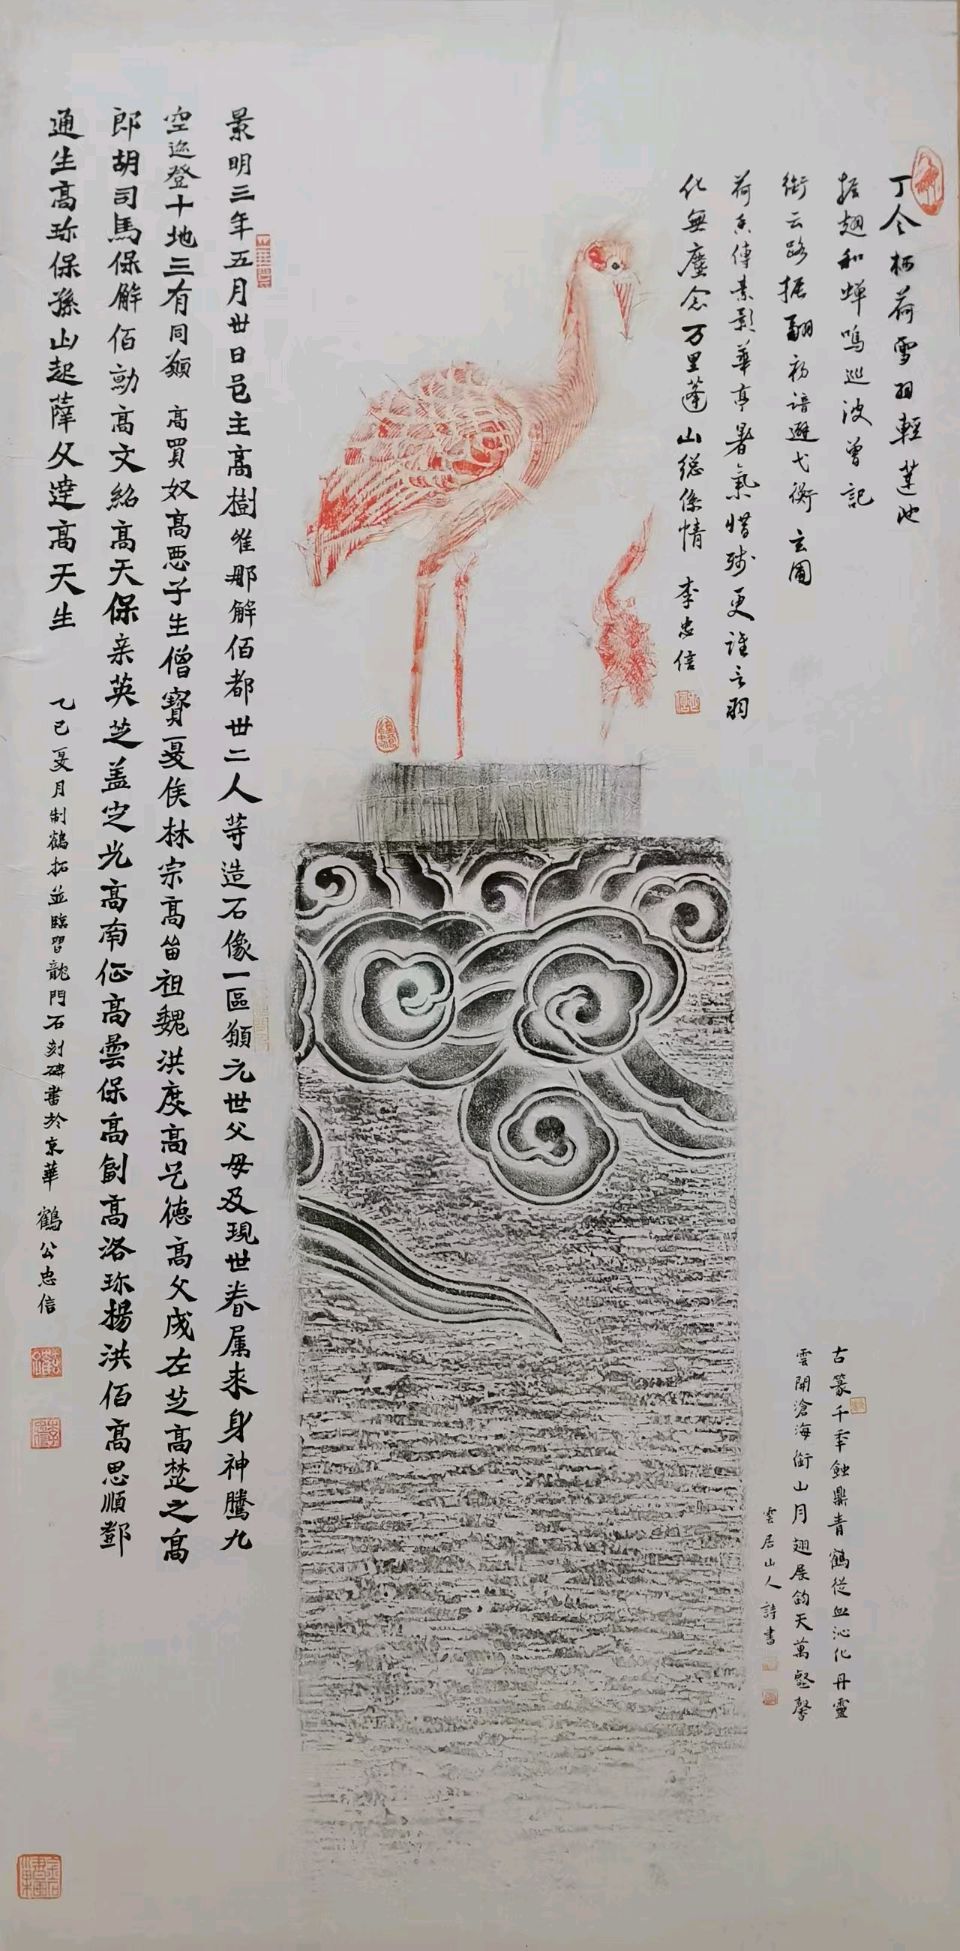 丁令栖荷雪羽輕蓮池
振翅和蝉鳴巡波曾記
銜云路振翮初諳避弋衡玄圃
荷香傳素影華亭暑氣惜殘更誰言羽
化無塵念万里蓬山總係情 李忠信
景明三年五月卅日邑主高樹維那解佰都卅二人等造石像一區願元世父母及現世眷属来身神騰九
空迩登十地三有同願 高買奴高悪子生僧寶夏侯林宗高留祖魏洪度高乞德高父成左芝高楚之高
郎胡司馬保解佰勍高文紹高天保亲英芝盖定光高南征高曇保高副高洛珎楊洪佰高思順鄧
通生高珎保孫山起薩父達高天生
乙巳夏月制鶴拓並臨習龍門石刻碑書於京華 鶴公忠信
古篆千年蝕鼎青鶴從血沁化丹靈
雲開滄海銜山月翅展鈞天萬壑馨
雲居山人詩書